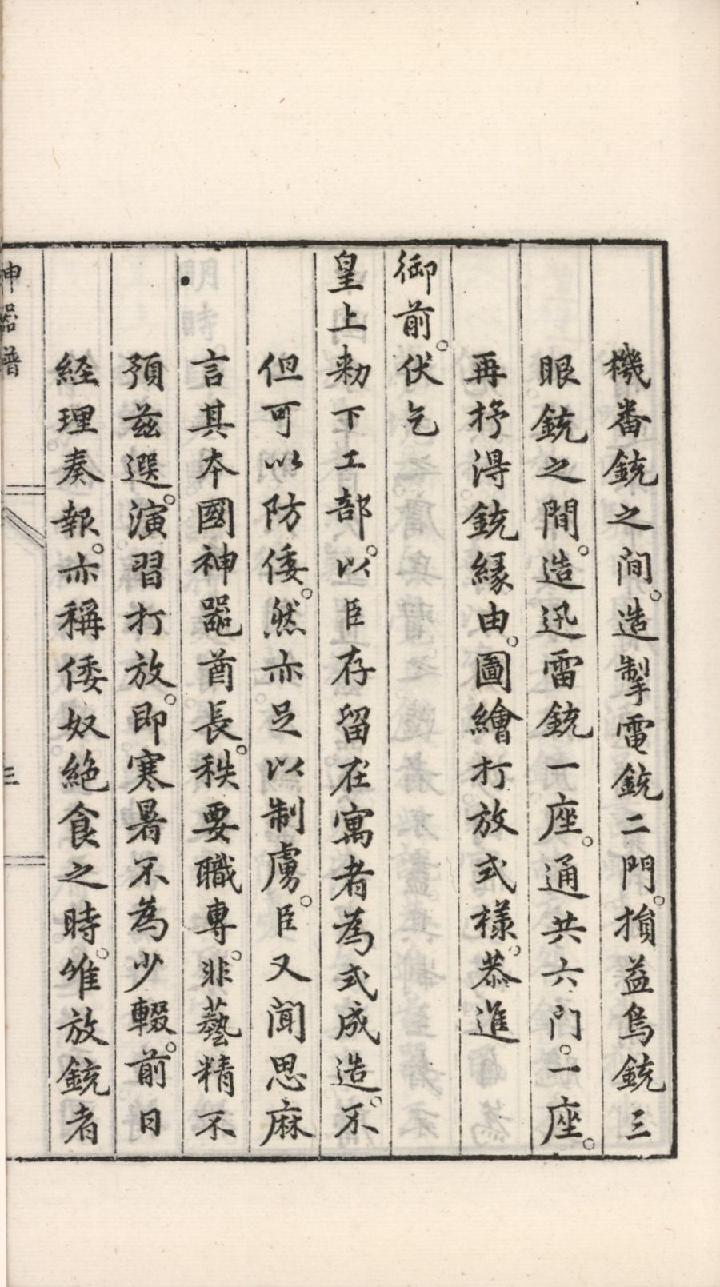 機番銃之间。造掣電銃二門。損益鳥銃三
眼銃之間。造迅雷銃一座。通共六门。一座。
再抒淂銃縁由。圖繪打放式樣。恭進
御前。伏乞
皇上勅下工部。以臣存留在寓者為式成造。不
但可以防倭。然亦足以制虜。臣又闻思麻
言其夲國神噐酋長。秩要職專。非藝精不
預兹選。演習打放。即寒暑不為少輟。前日
経理奏報。亦稱倭奴絶食之時。惟放銃者
神器譜
三